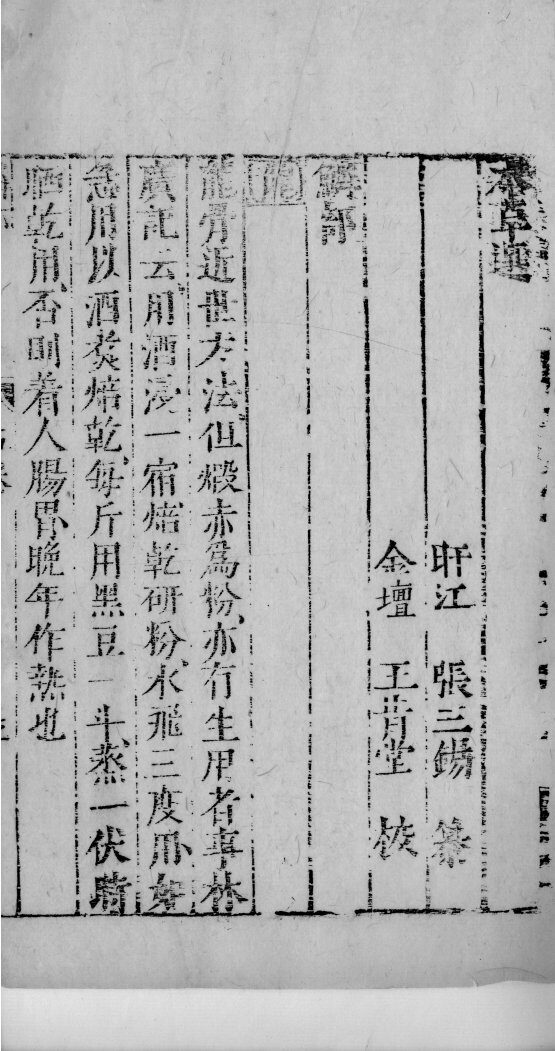 本草選
盱江 張三錫 纂
金壇 王肯堂 校
鱗部
龍
龍骨近世方法但煅赤為粉亦有生用者事林
廣記云用酒浸一宿焙乾研粉水飛三度用如
急用以酒煑焙乾每斤用黑豆一斗蒸一伏時
晒乾用否則着人腸胃晚年作熱也